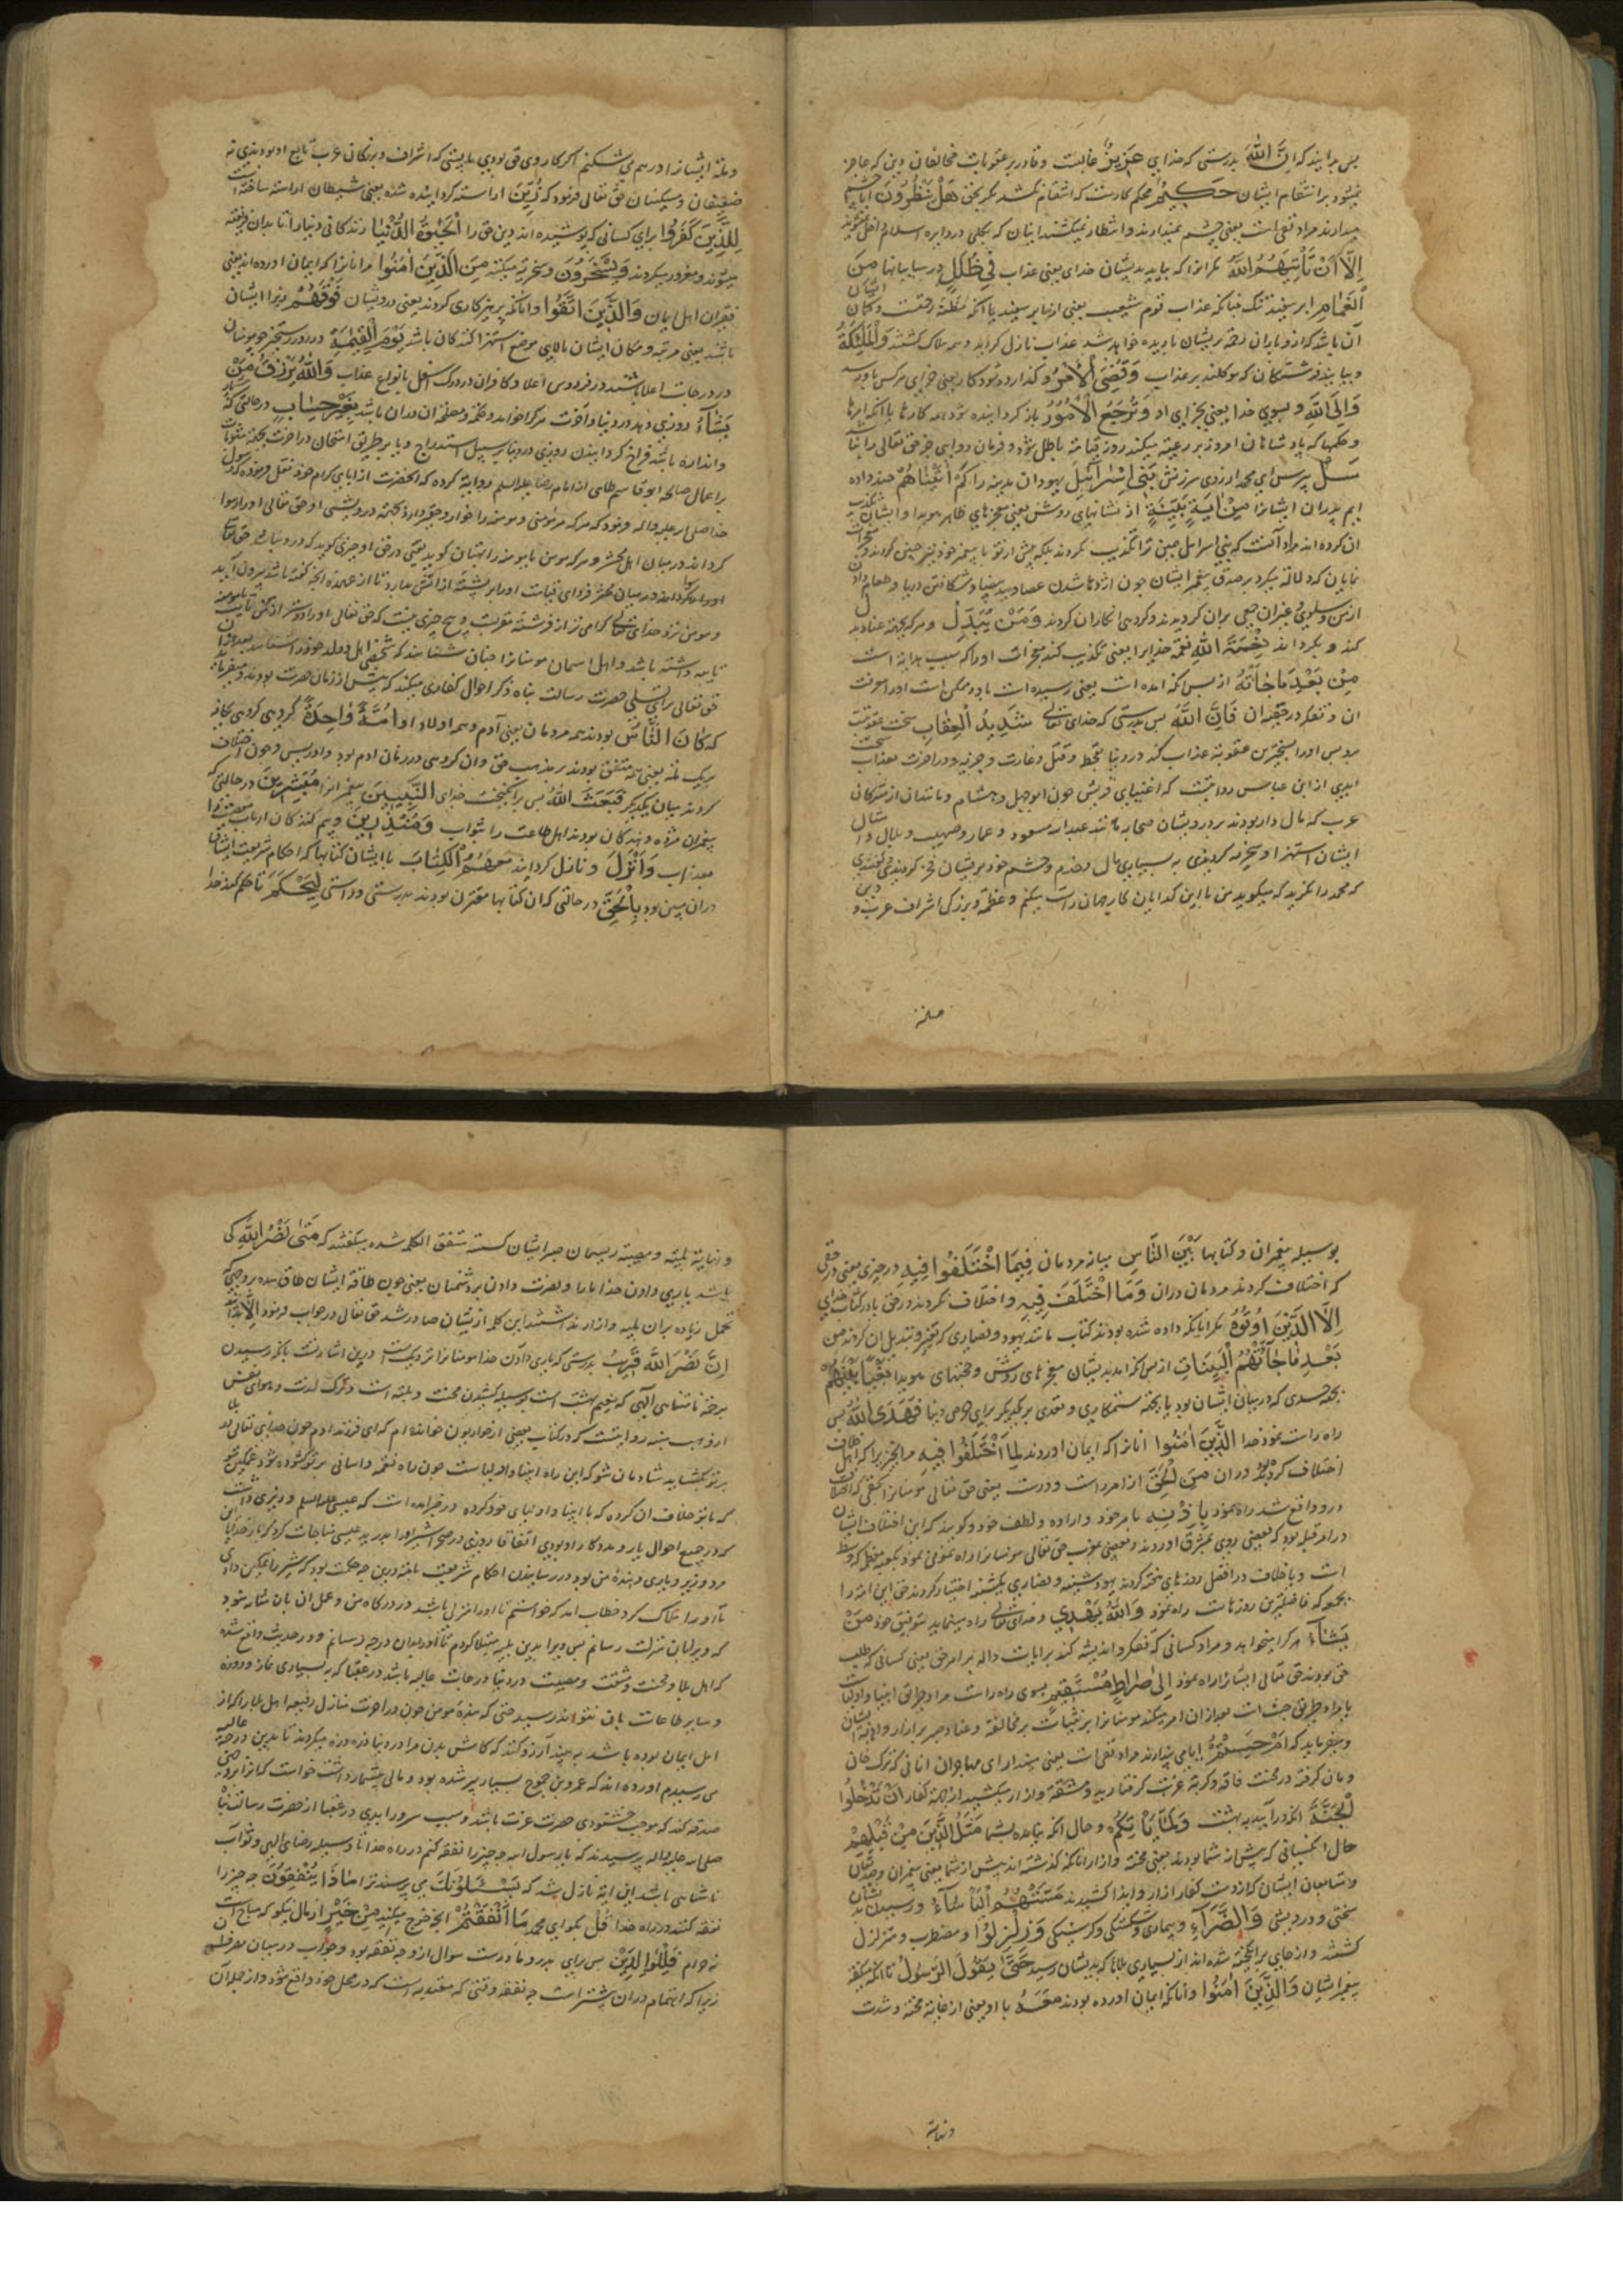 پس بدانید که اِنَّ اللهَ بدرستی که خدای عَزِیزٌ غالبست و قادر بر عقوبات مخالفان دین که عاجز
نمیشود بر انتقام ایشان حَکِیمٌ محکم کارست که انتقام نکشد مگر بحق هَلْ یَنْظُرُونَ ایا چشم
میدارند مراد نفی است یعنی چشم نمیدارند و انتظار نمیکشند اینان که بکلی در دایره اسلام داخل نمیشوند
اِلّا اَنْ یَأْتِیَهُمُ اللهُ مکر انرا که بیاید بدیشان خدای یعنی عذاب فِی ظُلَلٍ در سایبانها مِنَ
الْغَمَامِ ابر سفید تنک چنانکه عذاب قوم شعیب یعنی از ابر سفید یا انکه مظنه رحمتست و کمان ایشان
آن باشد که ازو باران رحمه بریشان بارید خواهد شد عذاب نازل کردد و همه هلاک کشتند وَالْمَلٰئِکَةُ
و بیایند فرشتکان که موکلند بر عذاب وَقُضِیَ الْاَمْرُ و کذارده شود کار یعنی جزای هرکس باو رسد
وَاِلَی اللهِ و بسوی خدا یعنی بجزای او تُرْجَعُ الْاُمُورُ باز کردانیده شود همه کارها با انکه امرها
و حکمها که پادشاهان امروز بر رعیه میکنند روز قیامة باطل شود و فرمان روایی جز حق تعالی را نباشد
سَلْ پرس ای محمد از روی سرزنش بَنِی اِسْرائیلَ یهودان مدینه را کَمْ اٰتَیْنَاهُمْ چند داده
ایم پدران ایشانرا مِنْ اٰیَةٍ بَیِّنَةٍ از نشانهای روشن یعنی معجزهای ظاهر هویدا و ایشان تکذیب
ان کرده اند مراد آنست که بنی اسرائیل همین ترا تکذیب نکردند بلکه پیش از تو با پیغمبر خود نیز چنین کردند و معجزات
نمایان که دلالة میکرد بر صدق پیغمبر ایشان چون اژدها شدن عصا و ید بیضا و شکافتن دریا و طعام دادن
از من و سلوی و غیر ان جمعی بران کرویدند و کروهی انکار ان کردند وَمَنْ یُبَدِّلْ و هرکه بجهة عناد بدل
کند و بکرداند نِعْمَةَ اللهِ نعمة خدایرا یعنی تکذیب کند معجزات او را که سبب هدایة است
مِنْ بَعْدِ مَا جَاءَتْهُ از پس انکه امده است یعنی رسیده است باو و ممکن است او را معرفت
ان و تفکر در حقیة ان فَاِنَّ اللهَ پس بدرستی که خدای تعالی شَدِیدُ الْعِقَابِ سخت عقوبتست
و پس او را بسخترین عقوبة عذاب کند در دنیا بقحط و قتل و غارت و جزیه و در اخرت بعذاب سخت
ابدی از ابن عباس روایتست که اغنیای قریش چون ابوجهل و هشام و مانندان از مشرکان
عرب که مال دار بودند بر درویشان صحابه مانند عبدالله مسعود و عمار و صهیب و بلال و امثال
ایشان استهزا و سخریه کردندی به بسیاری مال و خدم و حشم خود بریشان فخر کردندی و کفتندی
که محمد را نکرید که میکوید من با این کدایان کار جهان راست میکنم و عظمة و بزرکی اشراف عرب و دین
ملة
وملة ایشانرا در هم می شکنم اکر کار وی حق بودی بایستی که اشراف و بزرکان عرب تابع او بودندی نه
ضعیفان و مسکینان حق تعالی فرمود که زُیِّنَ اراسته کردانیده شده یعنی شیطان اراسته ساخته است
لِلَّذِینَ کَفَرُوا برای کسانی که پوشیده اند دین حق را الْحَیٰوةُ الدُّنْیَا زندکانی دنیا را تا بدان فریفته
میشوند و مغرور میکردند وَیَسْخَرُونَ و سخریة میکنند مِنَ الَّذِینَ اٰمَنُوا مر انانرا که ایمان اورده اند یعنی
فقیران اهل ایمان وَالَّذِینَ اتَّقَوْا و انانکه پرهیزکاری کردند یعنی درویشان فَوْقَهُمْ زبر ایشان
باشند یعنی مرتبه و مکان ایشان بالای موضع استهزا کنندکان باشد یَوْمَ الْقِیٰمَةِ در روز رستخیز چو مومنان
در درجات اعلا باشند در فردوس اعلا و کافران در درک اسفل بانواع عذاب وَاللهُ یَرْزُقُ مَنْ
یَشَاءُ روزی دهد در دنیا و اخرت هرکرا خواهد و حکمة و مصلحة ان دران باشد بِغَیْرِ حِسَابٍ درحالتی که
و اندازه باشد فراخ کردانیدن روزی در دنیا بر سبیل استدراج و یا بر طریق امتحان در اخرت بجهة مثوبات
یا اعمال صالحه ابو قاسم طلحی از امام رضا علیه السلم روایة کرده که انحضرت از ابای کرام خود نقل فرموده که رسول
خدا صلی الله علیه واله فرمود که هرکه مرد مومنی و مومنه را خوار و حقیر دارد بجهة درویشی او حق تعالی او را رسوا
کرداند در میان اهل محشر و هرکه مومن یا مومنه را بهتان کوید یعنی در حق او چیزی کوید که درو نباشد حق تعالی
و مومن نزد خدای تعالی کرامی تر از فرشته مقربست و هیچ چیزی نیست که حق تعالی او را دوستر از مومن تایب یا مومنه
تایبه داشته باشد و اهل اسمان مومنانرا چنان شناسند که شخصی اهل و ولد خود را شناسد بعد از ان
حق تعالی برای تسلی حضرت رسالت پناه ذکر احوال کفاری میکند که پیش از زمان حضرت بودند و میفرماید
که کَانَ النَّاسُ بودند همه مردمان یعنی آدم و همه اولاد او اُمَّةً وَاحِدَةً کروهی
بر یک ملة یعنی همه متفق بودند بر مذهب حق و ان کروهی در زمان ادم بود و ادریس و چون اختلاف
کردند میان یکدیکر فَبَعَثَ اللهُ پس برانکیخت خدای النَّبِیِّینَ پیغمبرانرا مُبَشِّرِینَ درحالتی که
پیغمبران مژده دهندکان بودند اهل طاعت را بثواب وَمُنْذِرِینَ و بیم کنندکان ارباب معصیت را
بعذاب وَاَنْزَلَ و نازل کردانید مَعَهُمُ الْکِتَابَ با ایشان کتابها که احکام شریعت ایشان
دران مبین بود بِالْحَقِّ در حالتی که ان کتابها مقترن بودند بدرستی و راستی لِیَحْکُمَ تا حکم کند خدا
بوسیله پیغمبران و کتابها بَیْنَ النَّاسِ میانه مردمان فِیمَا اخْتَلَفُوا فِیهِ در چیزی یعنی در حقی
که اختلاف کردند مردمان دران وَمَا اخْتَلَفَ فِیهِ و اختلاف نکردند در حق یا در کتاب خدای
اِلَّا الَّذِینَ اُوتُوهُ مکر انانکه داده شده بودند کتاب مانند یهود و نصاری که تغییر و تبدیل ان کردند مِنْ
بَعْدِ مَا جَاءَتْهُمُ الْبَیِّنَاتُ از پس انکه امدند بدیشان معجزهای روشن و حجتهای هویدا بَغْیًا بَیْنَهُمْ
بجهة حسدی که در میان ایشان بود یا بجهة ستمکاری و تعدی بر یکدیکر برای حرص دنیا فَهَدَی اللهُ پس
راه راست نمود خدا الَّذِینَ اٰمَنُوا انانرا که ایمان اوردند لِمَا اخْتَلَفُوا فِیهِ مر انچیز را که اهل خلاف
اختلاف کرده بودند دران مِنَ الْحَقِّ از امر راست و درست یعنی حق تعالی مومنانرا بحقی که اختلاف
درو واقع شد راه نمود بِاِذْنِهِ بامر خود و اراده و لطف خود و کویند که این اختلاف ایشان
در امر قبله بود که بعضی روی بمشرق اوردند و بعضی بمغرب حق تعالی مومنانرا راه نمونی نمود بکعبه معظمه که وسط
است و یا خلاف در افضل روزهای هفته کردند یهود شنبه و نصاری یکشنبه اختیار کردند حق این امة را
بجمعه که فاضلترین روزهاست راه نمود وَاللهُ یَهْدِی و خدای تعالی راه مینماید بتوفیق خود مَنْ
یَشَاءُ هرکرا میخواهد و مراد کسانی که تفکر و اندیشه کنند بر ایات داله بر امر حق یعنی کسانی که طلب
حق بودند حق تعالی ایشانرا راه نمود اِلٰی صِرَاطٍ مُسْتَقِیمٍ بسوی راه راست مراد طریق انبیا و اولیاست
یا مراد طریق جنت است بعد از ان امر میکند مومنانرا بر ثبات بر مخالفة و عناد و صبر بر ازار و ایذاء ایشان
و میفرماید که اَمْ حَسِبْتُمْ ایا می پندارند مراد نفی است یعنی مپندارید ای مهاجران انانی که ترک خان
و مان کرفته در محنت فاقه و کربة غربت کرفتارید و مشقة و ازار میکشید از جهة کفار اَنْ تَدْخُلُوا
الْجَنَّةَ انکه درآیید به بهشت وَلَمَّا یَأْتِکُمْ و حال انکه نیامده بشما مَثَلُ الَّذِینَ مِنْ قَبْلِکُمْ
حال انکسانی که پیش از شما بودند یعنی محنة و ازار انانکه کذشته اند پیش از شما یعنی پیغمبران و صدیقان
و تابعان ایشان که از دست کفار ازار و ایذا کشیدند مَسَّتْهُمُ الْبَأْسَاءُ و رسید بدیشان
سختی و درویشی وَالضَّرَّاءُ و بیماری و شکستکی و کرسنکی وَزُلْزِلُوا و مضطرب و متزلزل
کشتند و از جای برانکیخته شده اند از بسیاری بلاها که بدیشان رسید حَتّٰی یَقُولَ الرَّسُولُ تا انکه میکفته
پیغمبر ایشان وَالَّذِینَ اٰمَنُوا و انانکه ایمان اورده بودند مَعَهُ با او یعنی از غایة محنة و شدت
و نهایة
و نهایة بلیّه و مصیبة ریسمان صبر ایشان کسسته متفق الکلمه شده میکفتند که مَتٰی نَصْرُ اللهِ کی
باشد یاری دادن خدا ما را و نصرت دادن بر دشمنان یعنی چون طاقة ایشان طاق شده
تحمل زیاده بران بلیه و ازار نداشتند این کلمه ازیشان صادر شد حق تعالی در جواب فرمود اَلَا
اِنَّ نَصْرَ اللهِ قَرِیبٌ بدرستی که یاری دادن خدا مومنانرا نزدیکست درین اشارتست بانکه رسیدن
برحمة نامتناهی الهی که نعیم بهشت است بوسیله کشیدن محنت و بلیه است و ترک لذت و هوای نفس
از وهب منبه روایتست که در کتاب بعضی از حواریون خوانده ام که ای فرزند ادم چون خدای تعالی در بلا
بر تو بکشاید شادمان شو که این راه انبیا و اولیاست چون راه نعمة و اسانی بر تو کشوده شود غمکین شو
که با تو خلاف ان کرده که با انبیا و اولیای خود کرده در خبر امده است که عیسی علیه السلم وزیری داشت
که در جمیع احوال یار و مددکار او بودی اتفاقا روزی در صحرا شیر او را بدرید عیسی مناجات کرد که بار خدایا
مرد وزیر و یاری دهنده من بود در رسانیدن احکام شریعت
تا او را هلاک کرد خطاب امد که خواستم تا او را منزلی باشد در درکاه من و عمل ان بان نمیرسید
که ویرا بان منزلت رسانم پس ویرا بدین بلیه مبتلا کردم تا او بدان درجه رسانم و در حدیث واقع شده
که اهل بلا و محنت و مشقت و مصیبت در دنیا درجات عالیه باشد در عقبا که به بسیاری نماز و روزه
و سایر طاعات بان نتوانند رسید حتی که بنده مومن چون در اخرت منازل رفیعه اهل بلا را که از
اهل ایمان بوده باشد ببیند آرزو کند که کاش بدن مرا در دنیا ذره ذره میکردند تا بدین درجه عالیه
می رسیدم اورده اند که عمرو بن جموح بسیار پیر شده بود و مالی بیشمار داشت خواست که انرا بر وجهی
صدقه کند که موجب خوشنودی حضرت عزت باشد و سبب سرور ابدی در عقبا از حضرت رسالت پناه
صلی الله علیه واله پرسیدند که یا رسول الله چه چیز را نفقه کنیم در راه خدا تا وسیله رضای الهی و ثواب
نامتناهی باشد این ایة نازل شد که یَسْئَلُونَکَ می پرسند ترا مَاذَا یُنْفِقُونَ چه چیز را
نفقه کنند در راه خدا قُلْ بکو ای محمد مَا اَنْفَقْتُمْ انچه خرج میکنید مِنْ خَیْرٍ از مال نیکو که مباح است
نه حرام فَلِلْوَالِدَیْنِ پس برای پدر و مادرست سوال از وجه نفقه بود و جواب در بیان مصرف ان
زیرا که اهتمام دران بیشتر است چه نفقه وقتی که معتدبه است که در محل خود واقع شود و از جمله آن